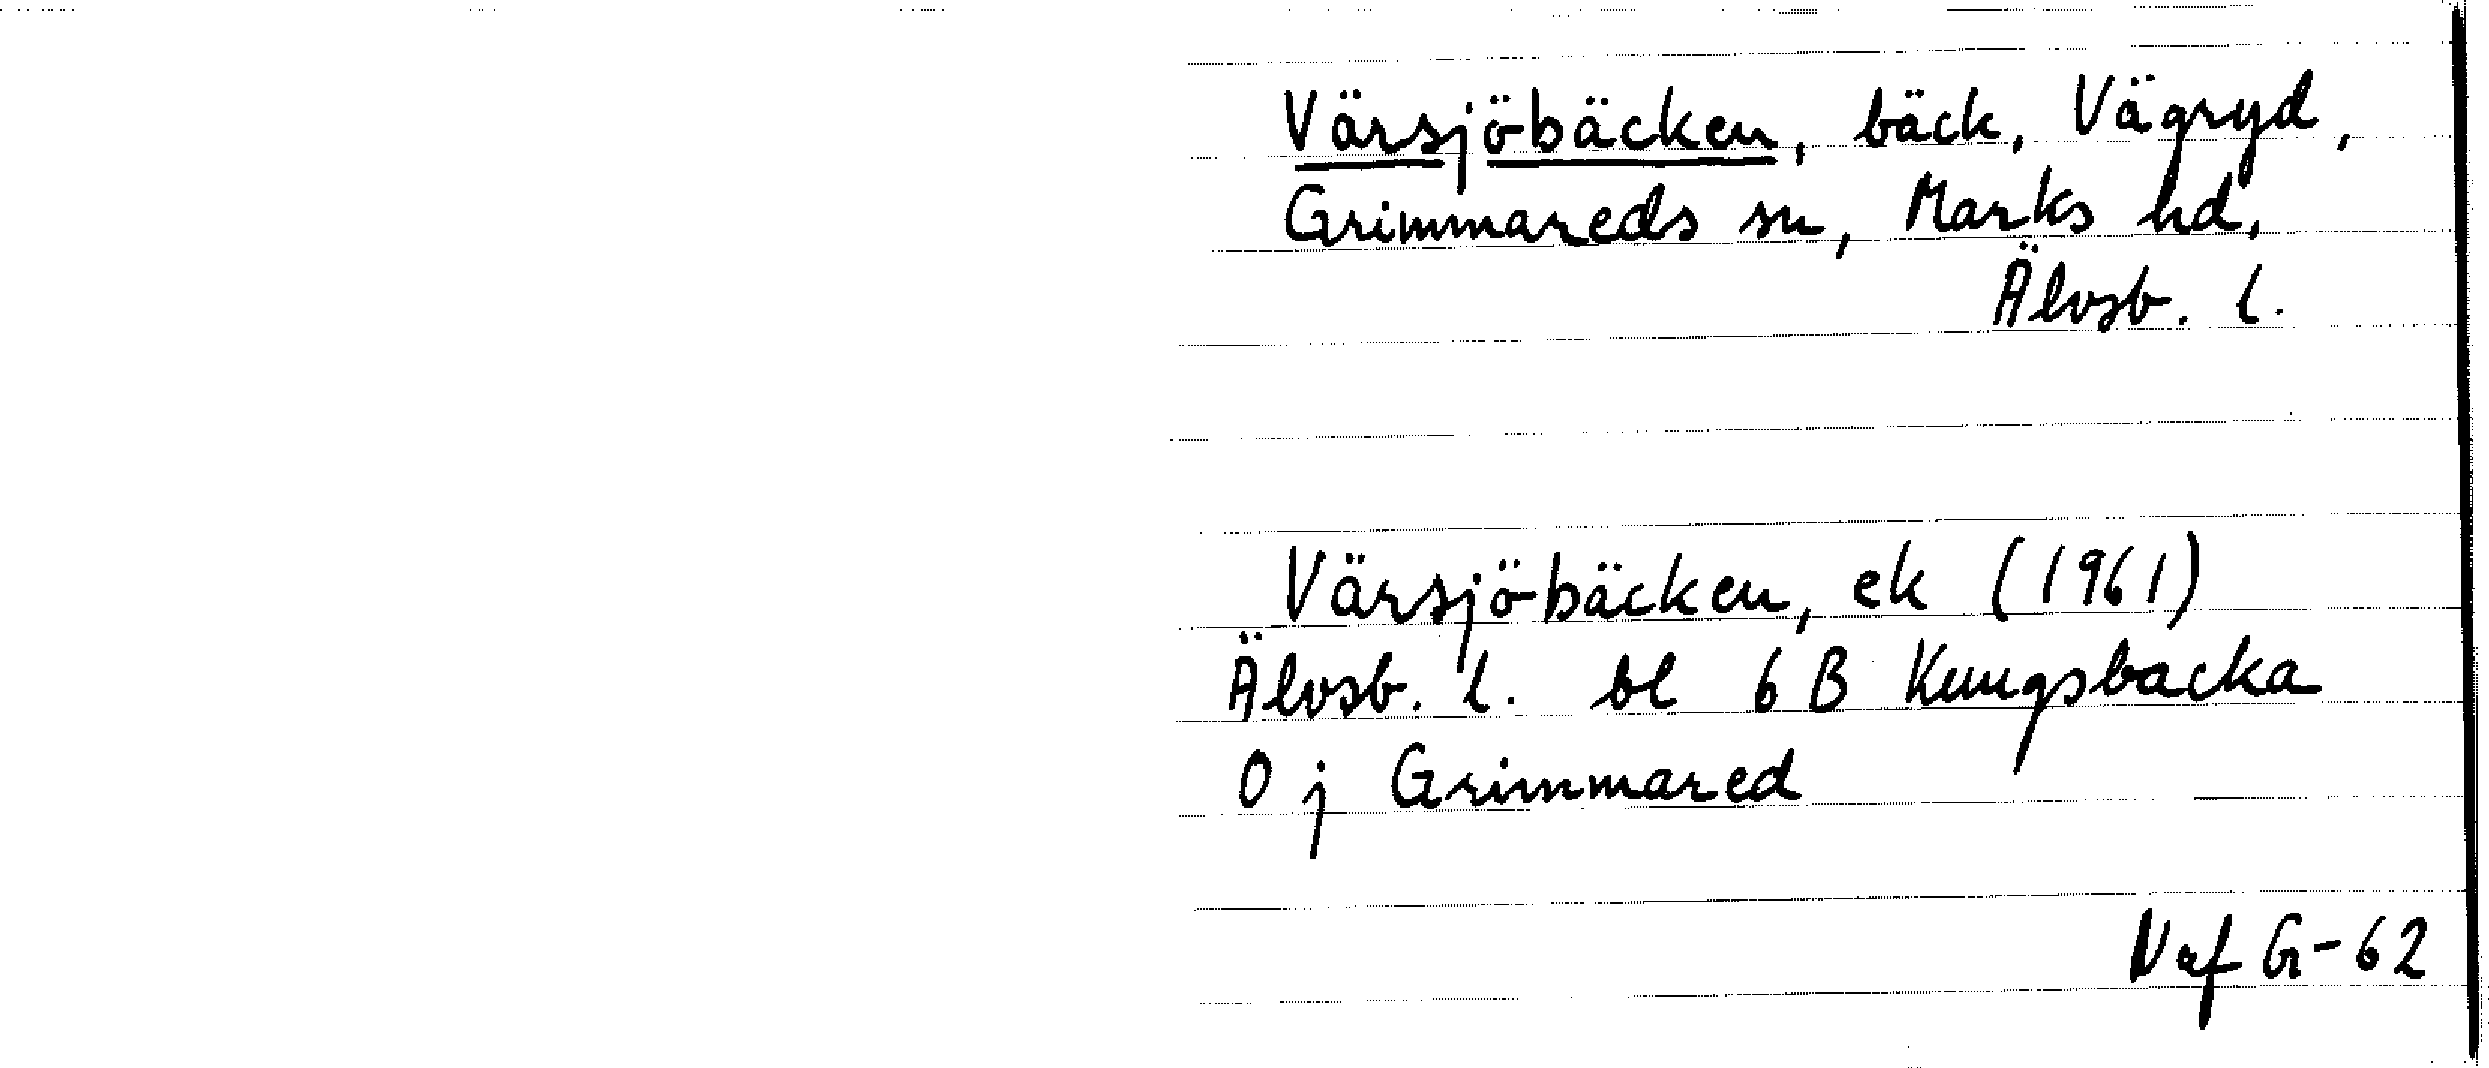 Värsjöbäcken, bäck, Vägryd,
Grimmareds sn, Marks hd,
Älvsb. l.
Värsjöbäcken, ek (1961)
Älvsb. l. bl 6 B Kungsbacka
0 j Grimmared
Vaf G-62